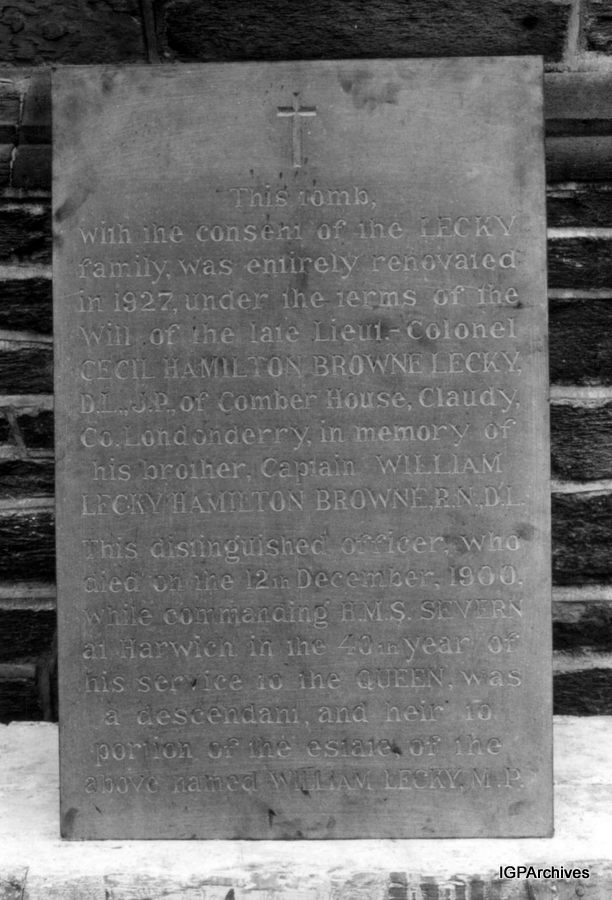 This tomb,
with the consent of the LECKY
family, was entirely renovated
in 1927, under the terms of the
Will of the late Lieut.-Colonel
CECIL HAMILTON BROWNE LECKY,
D.L., J.P., of Comber House, Claudy,
Co. Londonderry, in memory of
his brother, Captain WILLIAM
LECKY HAMILTON BROWNE, R.N., D.L.
This distinguished officer, who
died on the 12th December, 1900,
while commanding H.M.S. SEVERN
at Harwich in the 40th year of
his service to the QUEEN, was
a descendant, and heir to
portion of the estate of the
above named WILLIAM LECKY, M.P.
IGPArchives